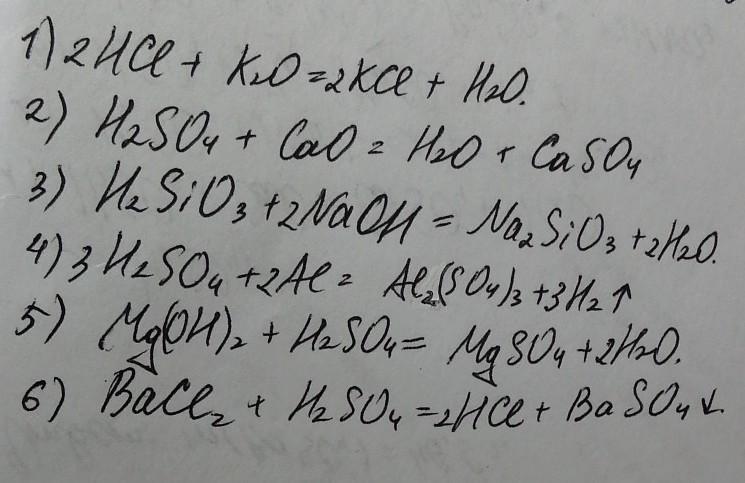 1) 2HCl + K₂O = 2KCl + H₂O.
2) H₂SO₄ + CaO = H₂O + CaSO₄
3) H₂SiO₃ + 2NaOH = Na₂SiO₃ + 2H₂O.
4) 3H₂SO₄ + 2Al = Al₂(SO₄)₃ + 3H₂↑
5) Mg(OH)₂ + H₂SO₄ = MgSO₄ + 2H₂O.
6) BaCl₂ + H₂SO₄ = 2HCl + BaSO₄↓.